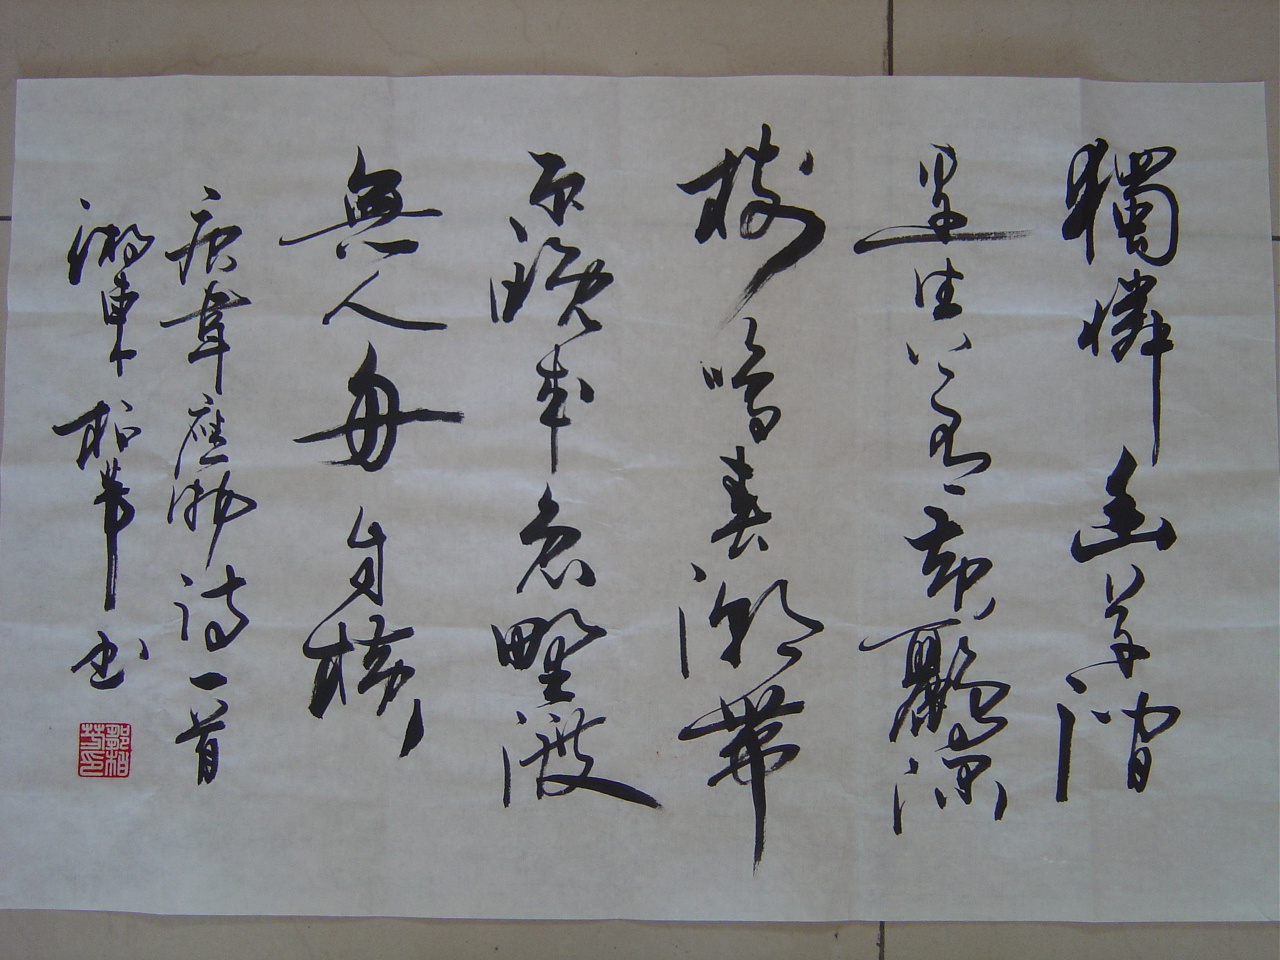 獨憐幽草澗
邊生上有黃鸝深
樹鳴春潮帶
雨晚來急野渡
無人舟自橫
唐韋應物詩一首
湘東柏书
郭柏印